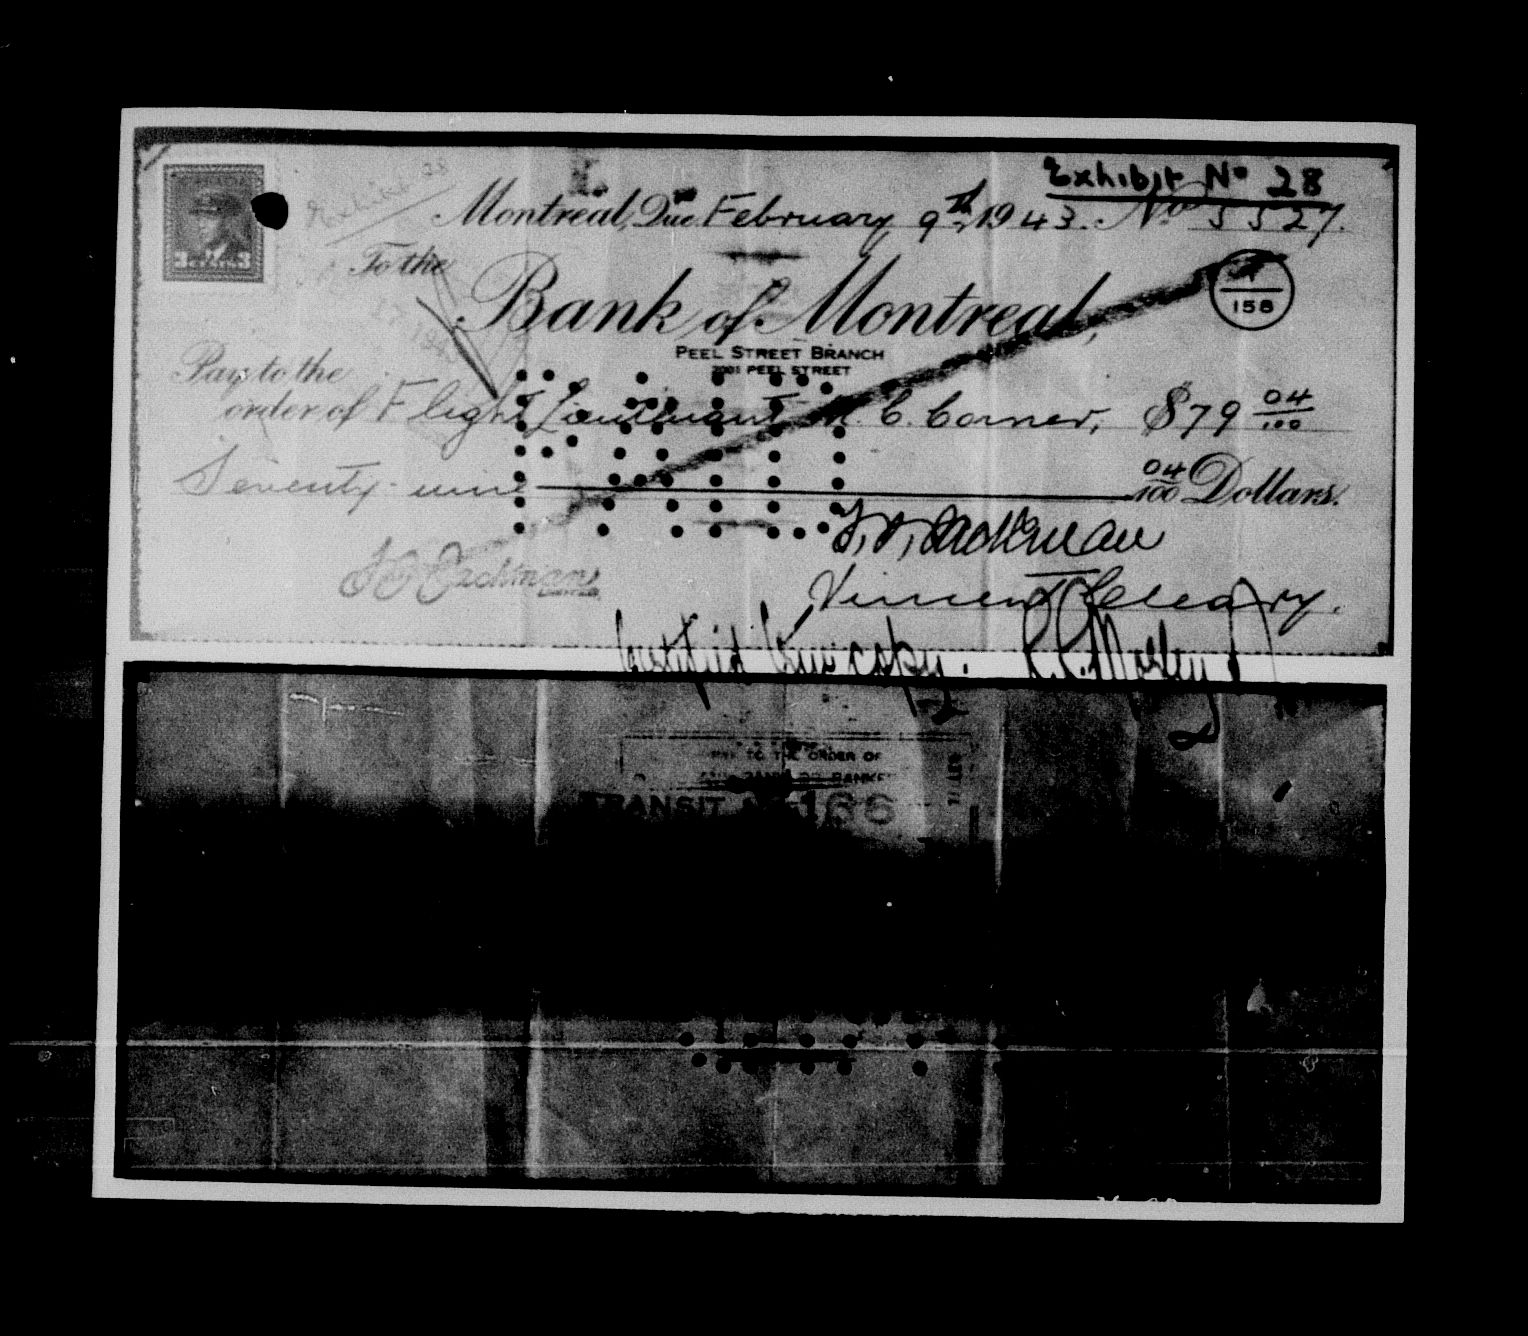 Exhibit No 28
Montreal, Due February 9th, 1943. No 5527.
3 CENTS 3
To the
Bank of Montreal,
158
PEEL STREET BRANCH
2001 PEEL STREET
Pay to the
order of Flight Lieutenant H. C. Corner, $79 04/100
Seventy-nine 04/100 Dollars.
Vincent Cleary.
Certified true copy.
PAY TO THE ORDER OF
TRANSIT 166